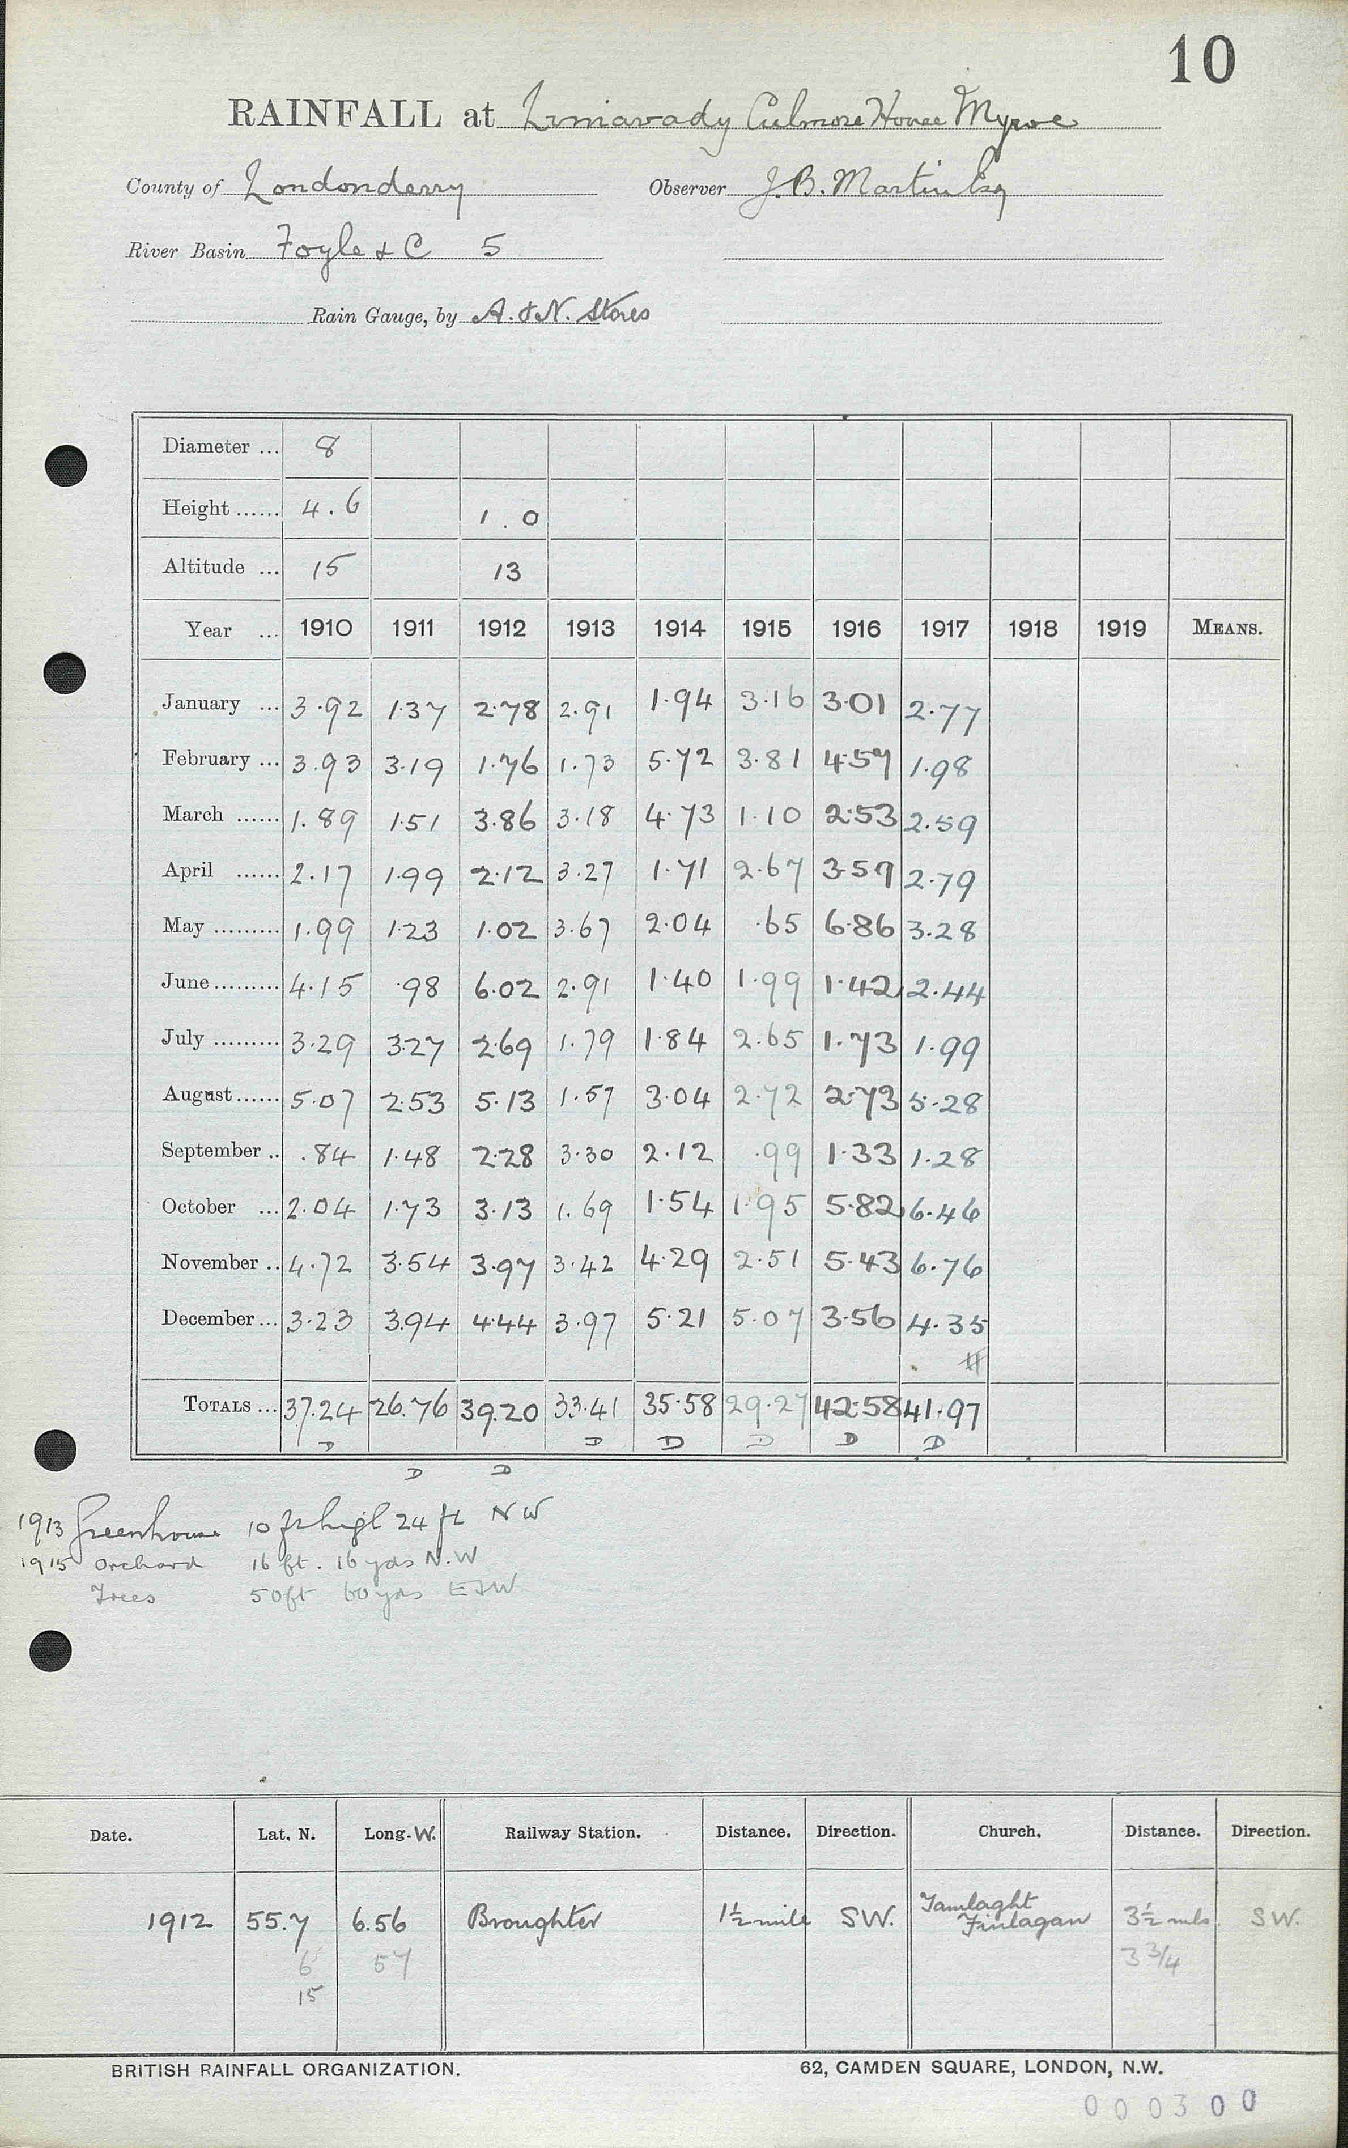 10
RAINFALL at Limavady Culmore House Myroe
County of Londonderry Observer J. B. Martin Esq
River Basin Foyle & C 5
Rain Gauge, by A. & N. Stores
Diameter ... 8
Height ...... 4.6 1.0
Altitude ... 15 13
Year ... 1910 1911 1912 1913 1914 1915 1916 1917 1918 1919 MEANS.
January ... 3.92 1.37 2.78 2.91 1.94 3.16 3.01 2.77
February ... 3.93 3.19 1.76 1.73 5.72 3.81 4.57 1.98
March ...... 1.89 1.51 3.86 3.18 4.73 1.10 2.53 2.59
April ...... 2.17 1.99 2.12 3.27 1.71 2.67 3.59 2.79
May ......... 1.99 1.23 1.02 3.67 2.04 .65 6.86 3.28
June ......... 4.15 .98 6.02 2.91 1.40 1.99 1.42 2.44
July ......... 3.29 3.27 2.69 1.79 1.84 2.65 1.73 1.99
August ...... 5.07 2.53 5.13 1.57 3.04 2.72 2.73 5.28
September .. .84 1.48 2.28 3.30 2.12 .99 1.33 1.28
October ... 2.04 1.73 3.13 1.69 1.54 1.95 5.82 6.46
November .. 4.72 3.54 3.97 3.42 4.29 2.51 5.43 6.76
December ... 3.23 3.94 4.44 3.97 5.21 5.07 3.56 4.35
TOTALS ... 37.24 26.76 39.20 33.41 35.58 29.27 42.58 41.97
D D D D D D
D D
1913 Greenhouse 10 ft high 24 ft NW
1915 Orchard 16 ft. 16 yds N.W
Trees 50ft 60 yds E & W
Date. Lat. N. Long. W. Railway Station. Distance. Direction. Church. Distance. Direction.
1912 55.7 6.56 Broughter 1½ mile SW. Tamlaght Finlagan 3½ mls SW.
6 57 3¾
15
BRITISH RAINFALL ORGANIZATION. 62, CAMDEN SQUARE, LONDON, N.W.
000300